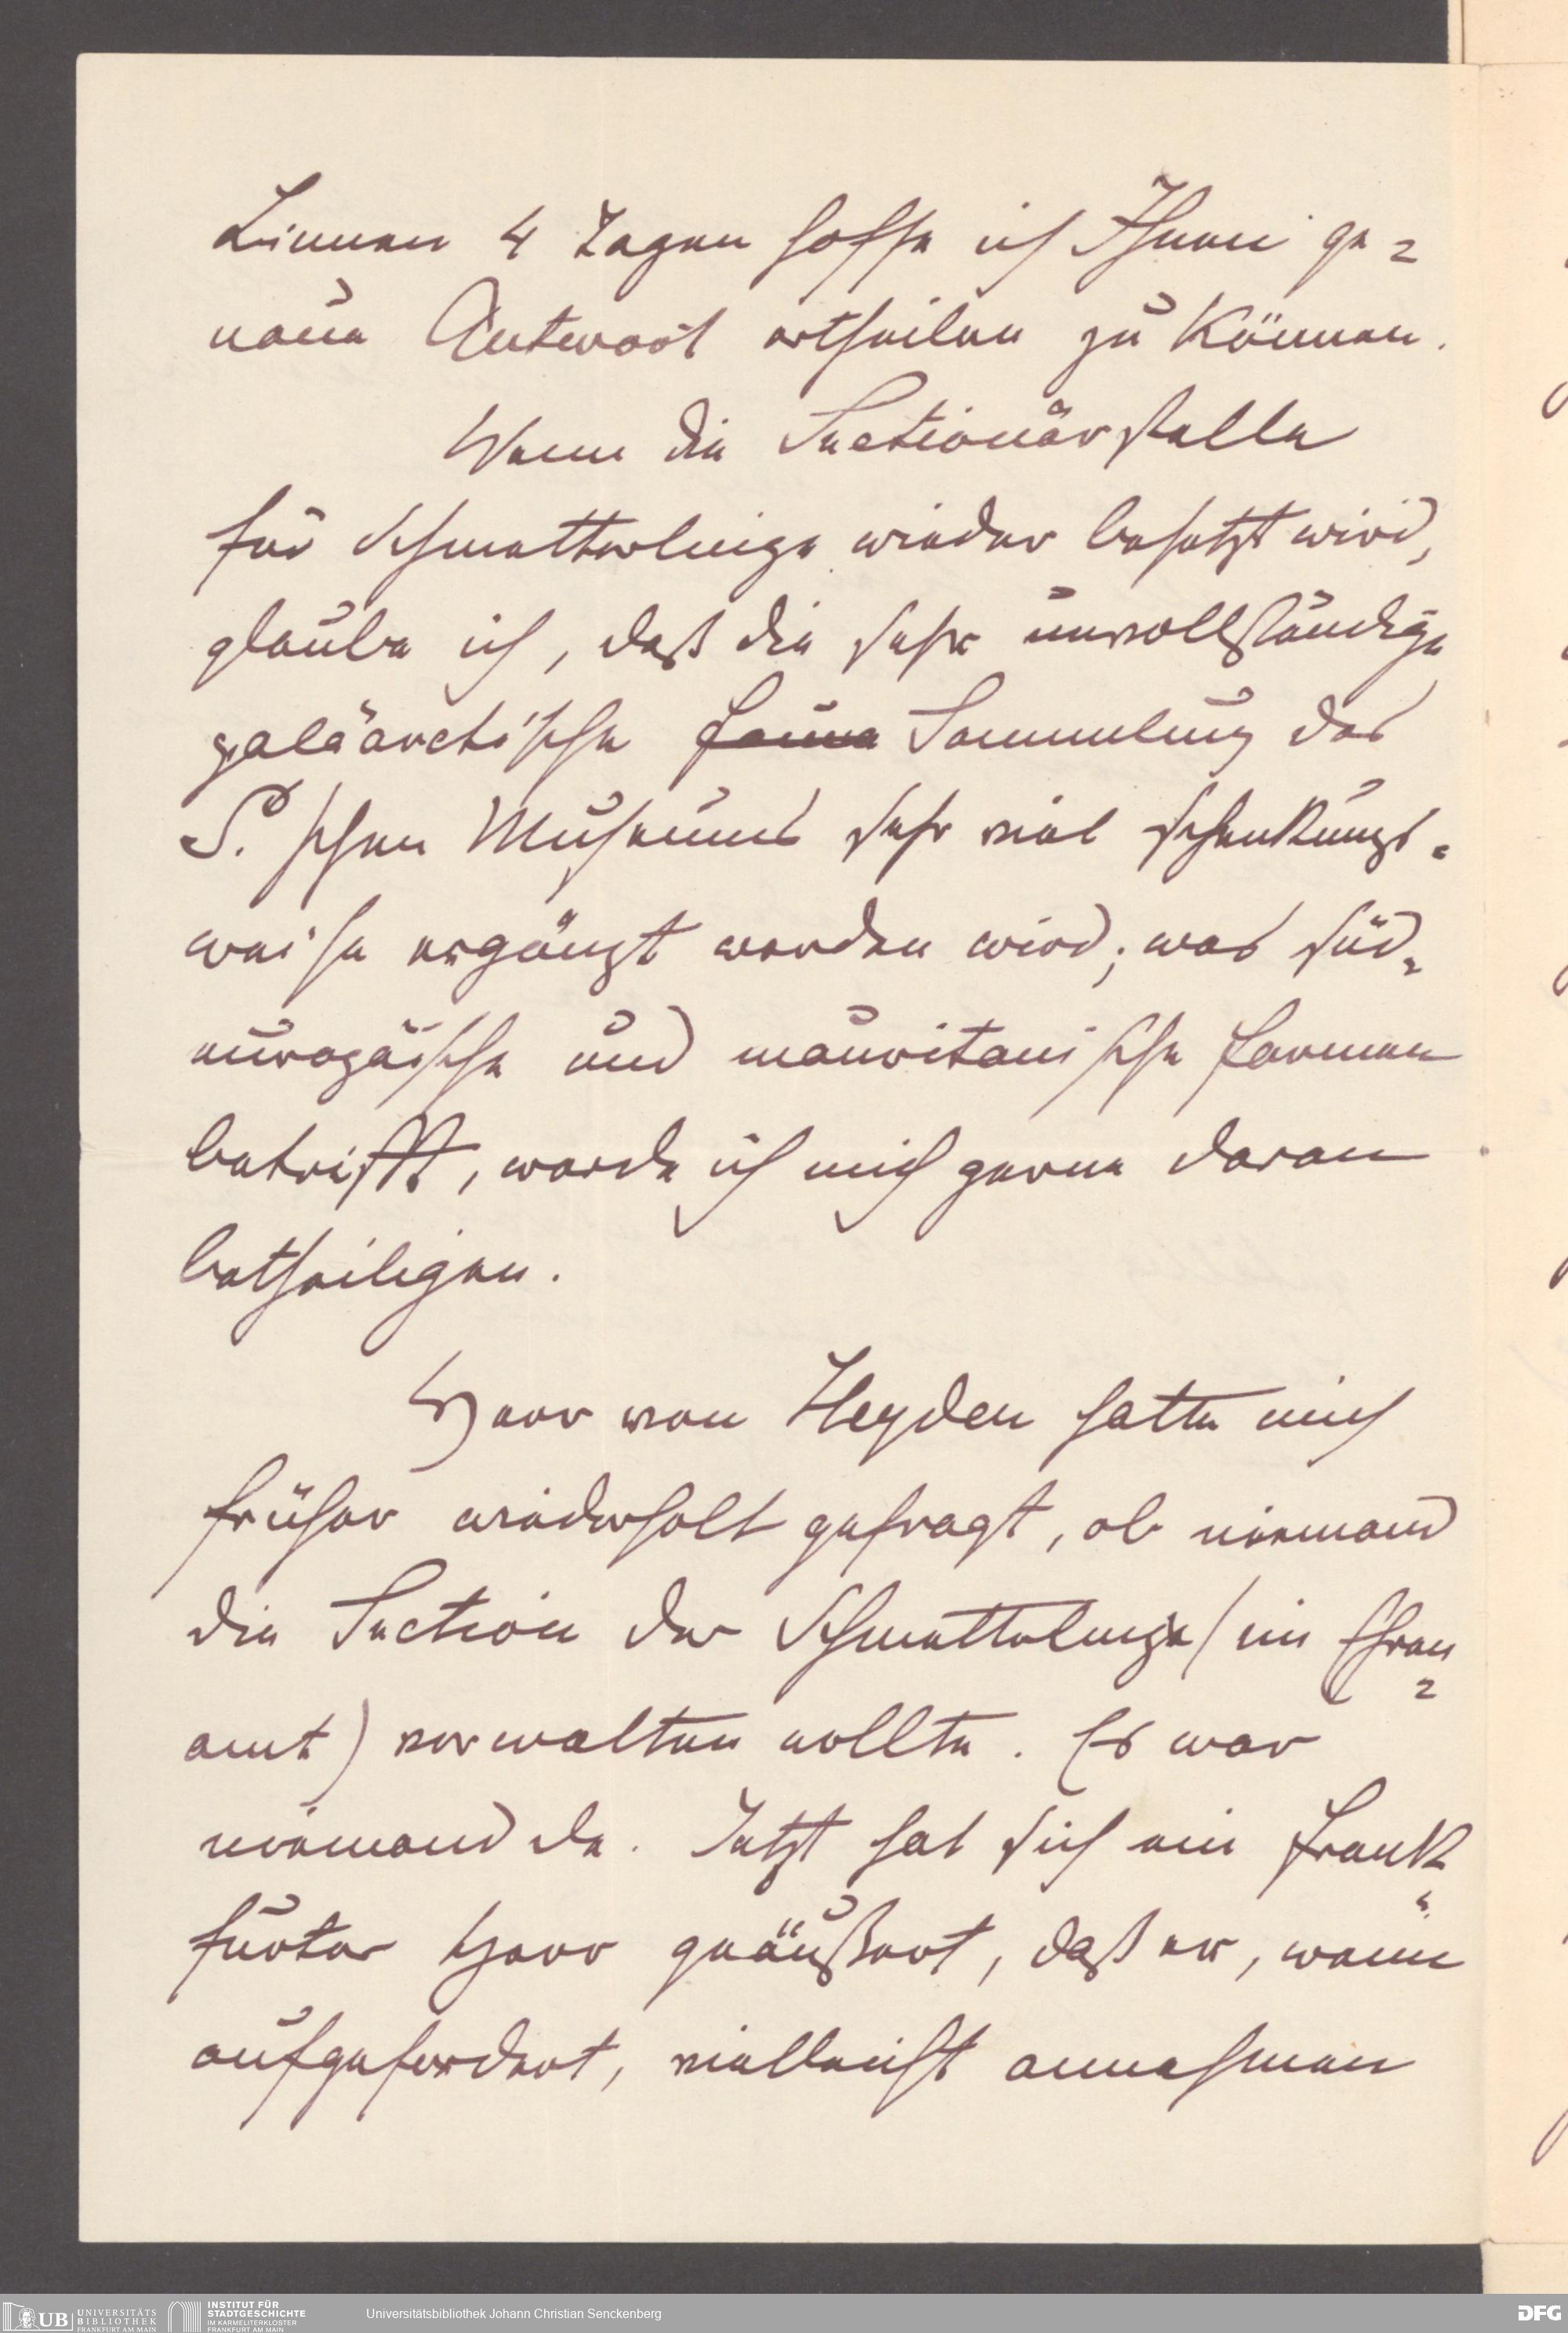 Binnen 4 Tagen hoffe ich Ihnen ge-
naue Antwort ertheilen zu können.
Wenn die Sectionärstelle
für Schmetterlinge wieder besetzt wird,
glaube ich, daß die sehr unvollständige
paläarctische Fauna Sammlung des
S. schen Museums sehr viel schenkungs-
weise ergänzt werden wird; was süd-
europäische und mauritanische Formen
betrifft, werde ich mich gerne daran
betheiligen.
Herr von Heyden hatte mich
früher wiederholt gefragt, ob niemand
die Section der Schmetterlinge (im Ehren-
amt) verwalten wollte. Es war
niemand da. Jetzt hat sich ein Frank-
furter Herr geäußert, daß er, wenn
aufgefordert, vielleicht annehmen
UB UNIVERSITÄTS
BIBLIOTHEK
FRANKFURT AM MAIN
INSTITUT FÜR
STADTGESCHICHTE
IM KARMELITERKLOSTER
FRANKFURT AM MAIN
Universitätsbibliothek Johann Christian Senckenberg
DFG